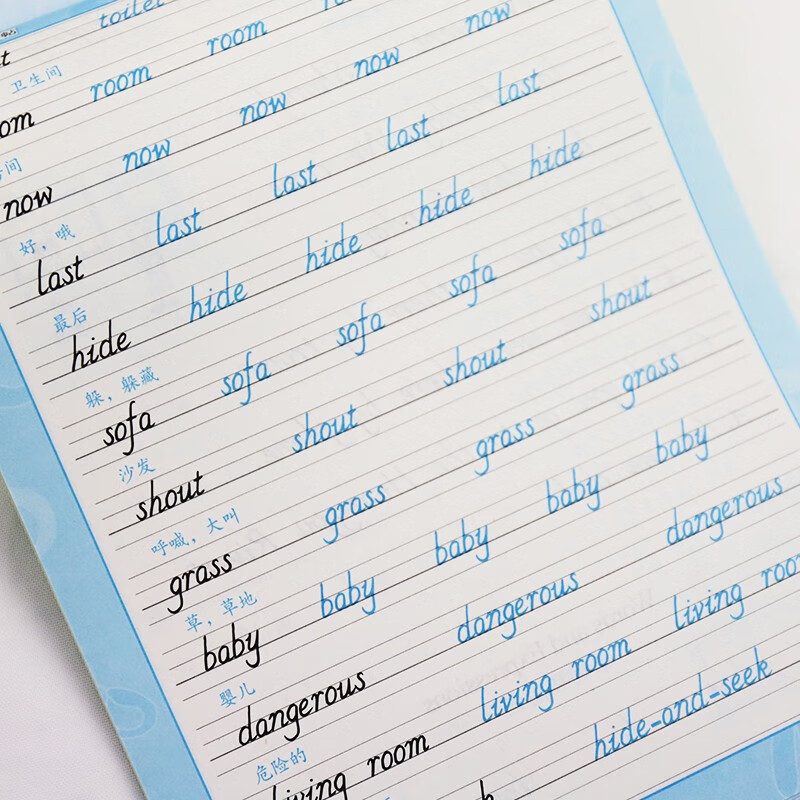 toilet
卫生间
room room
间
now now now now now
好，哦
last last last last last
最后
hide hide hide hide hide
躲，躲藏
sofa sofa sofa sofa sofa
沙发
shout shout shout shout
呼喊，大叫
grass grass grass grass
草，草地
baby baby baby baby baby
婴儿
dangerous dangerous dangerous
危险的
living room living room living roo
hide-and-seek